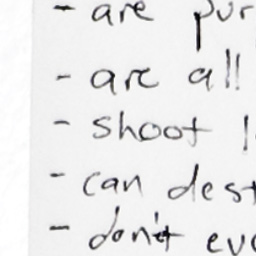 - are pur
- are all
- shoot l
- can dest
- don't eve